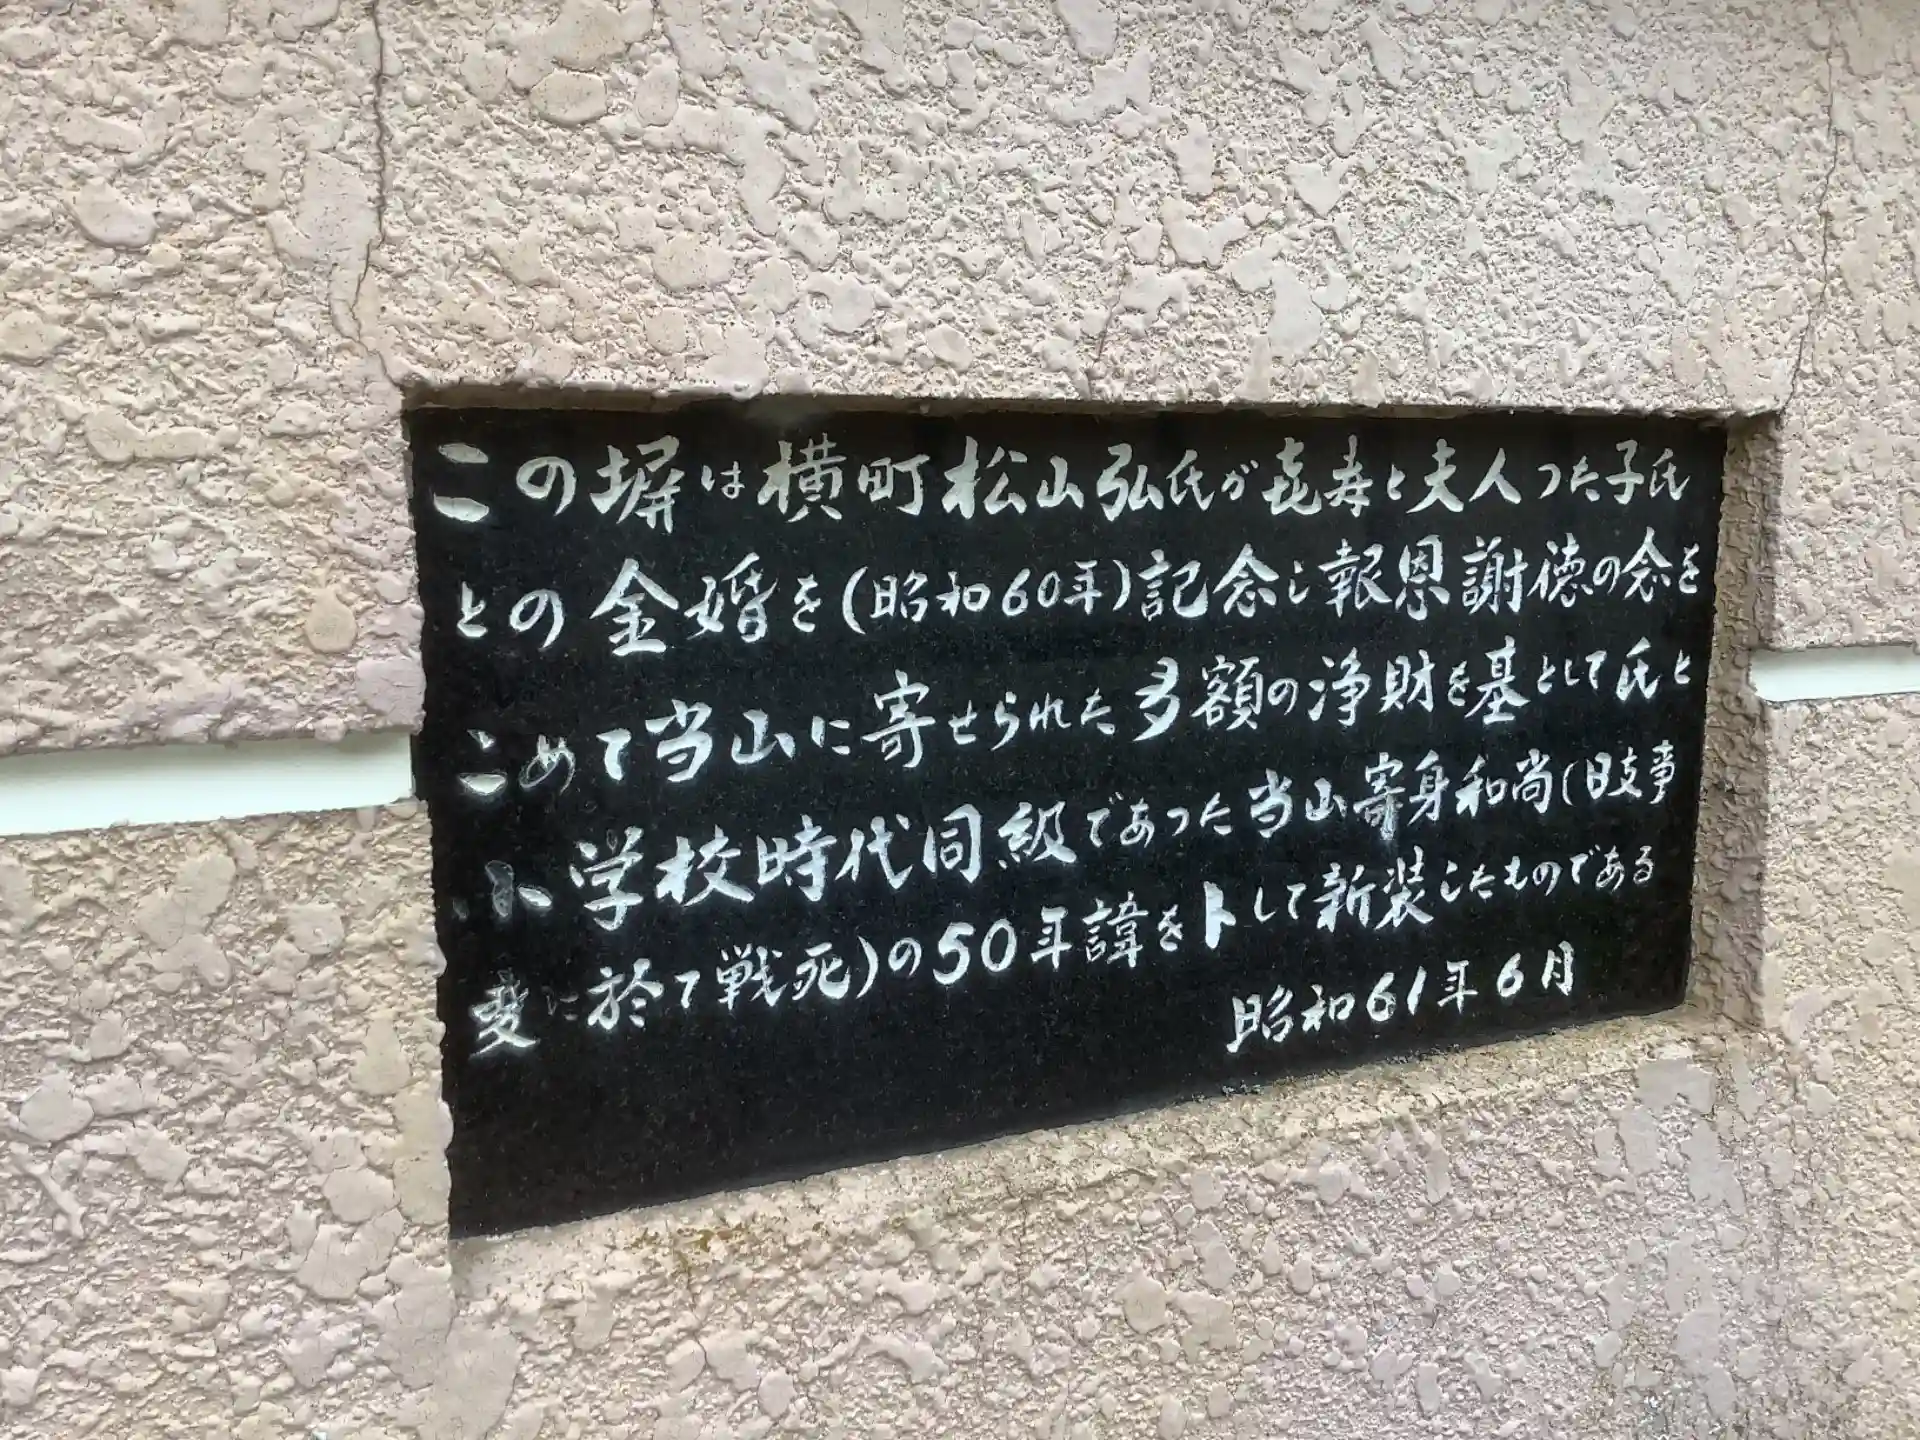 この塀は横町松山弘氏が㐂寿と夫人つた子氏
との金婚を(昭和60年)記念し報恩謝徳の念を
こめて当山に寄せられた多額の浄財を基として氏と
小学校時代同級であった当山寄身和尚(日支事
変に於て戦死)の50年諱をトして新装したものである
昭和61年6月